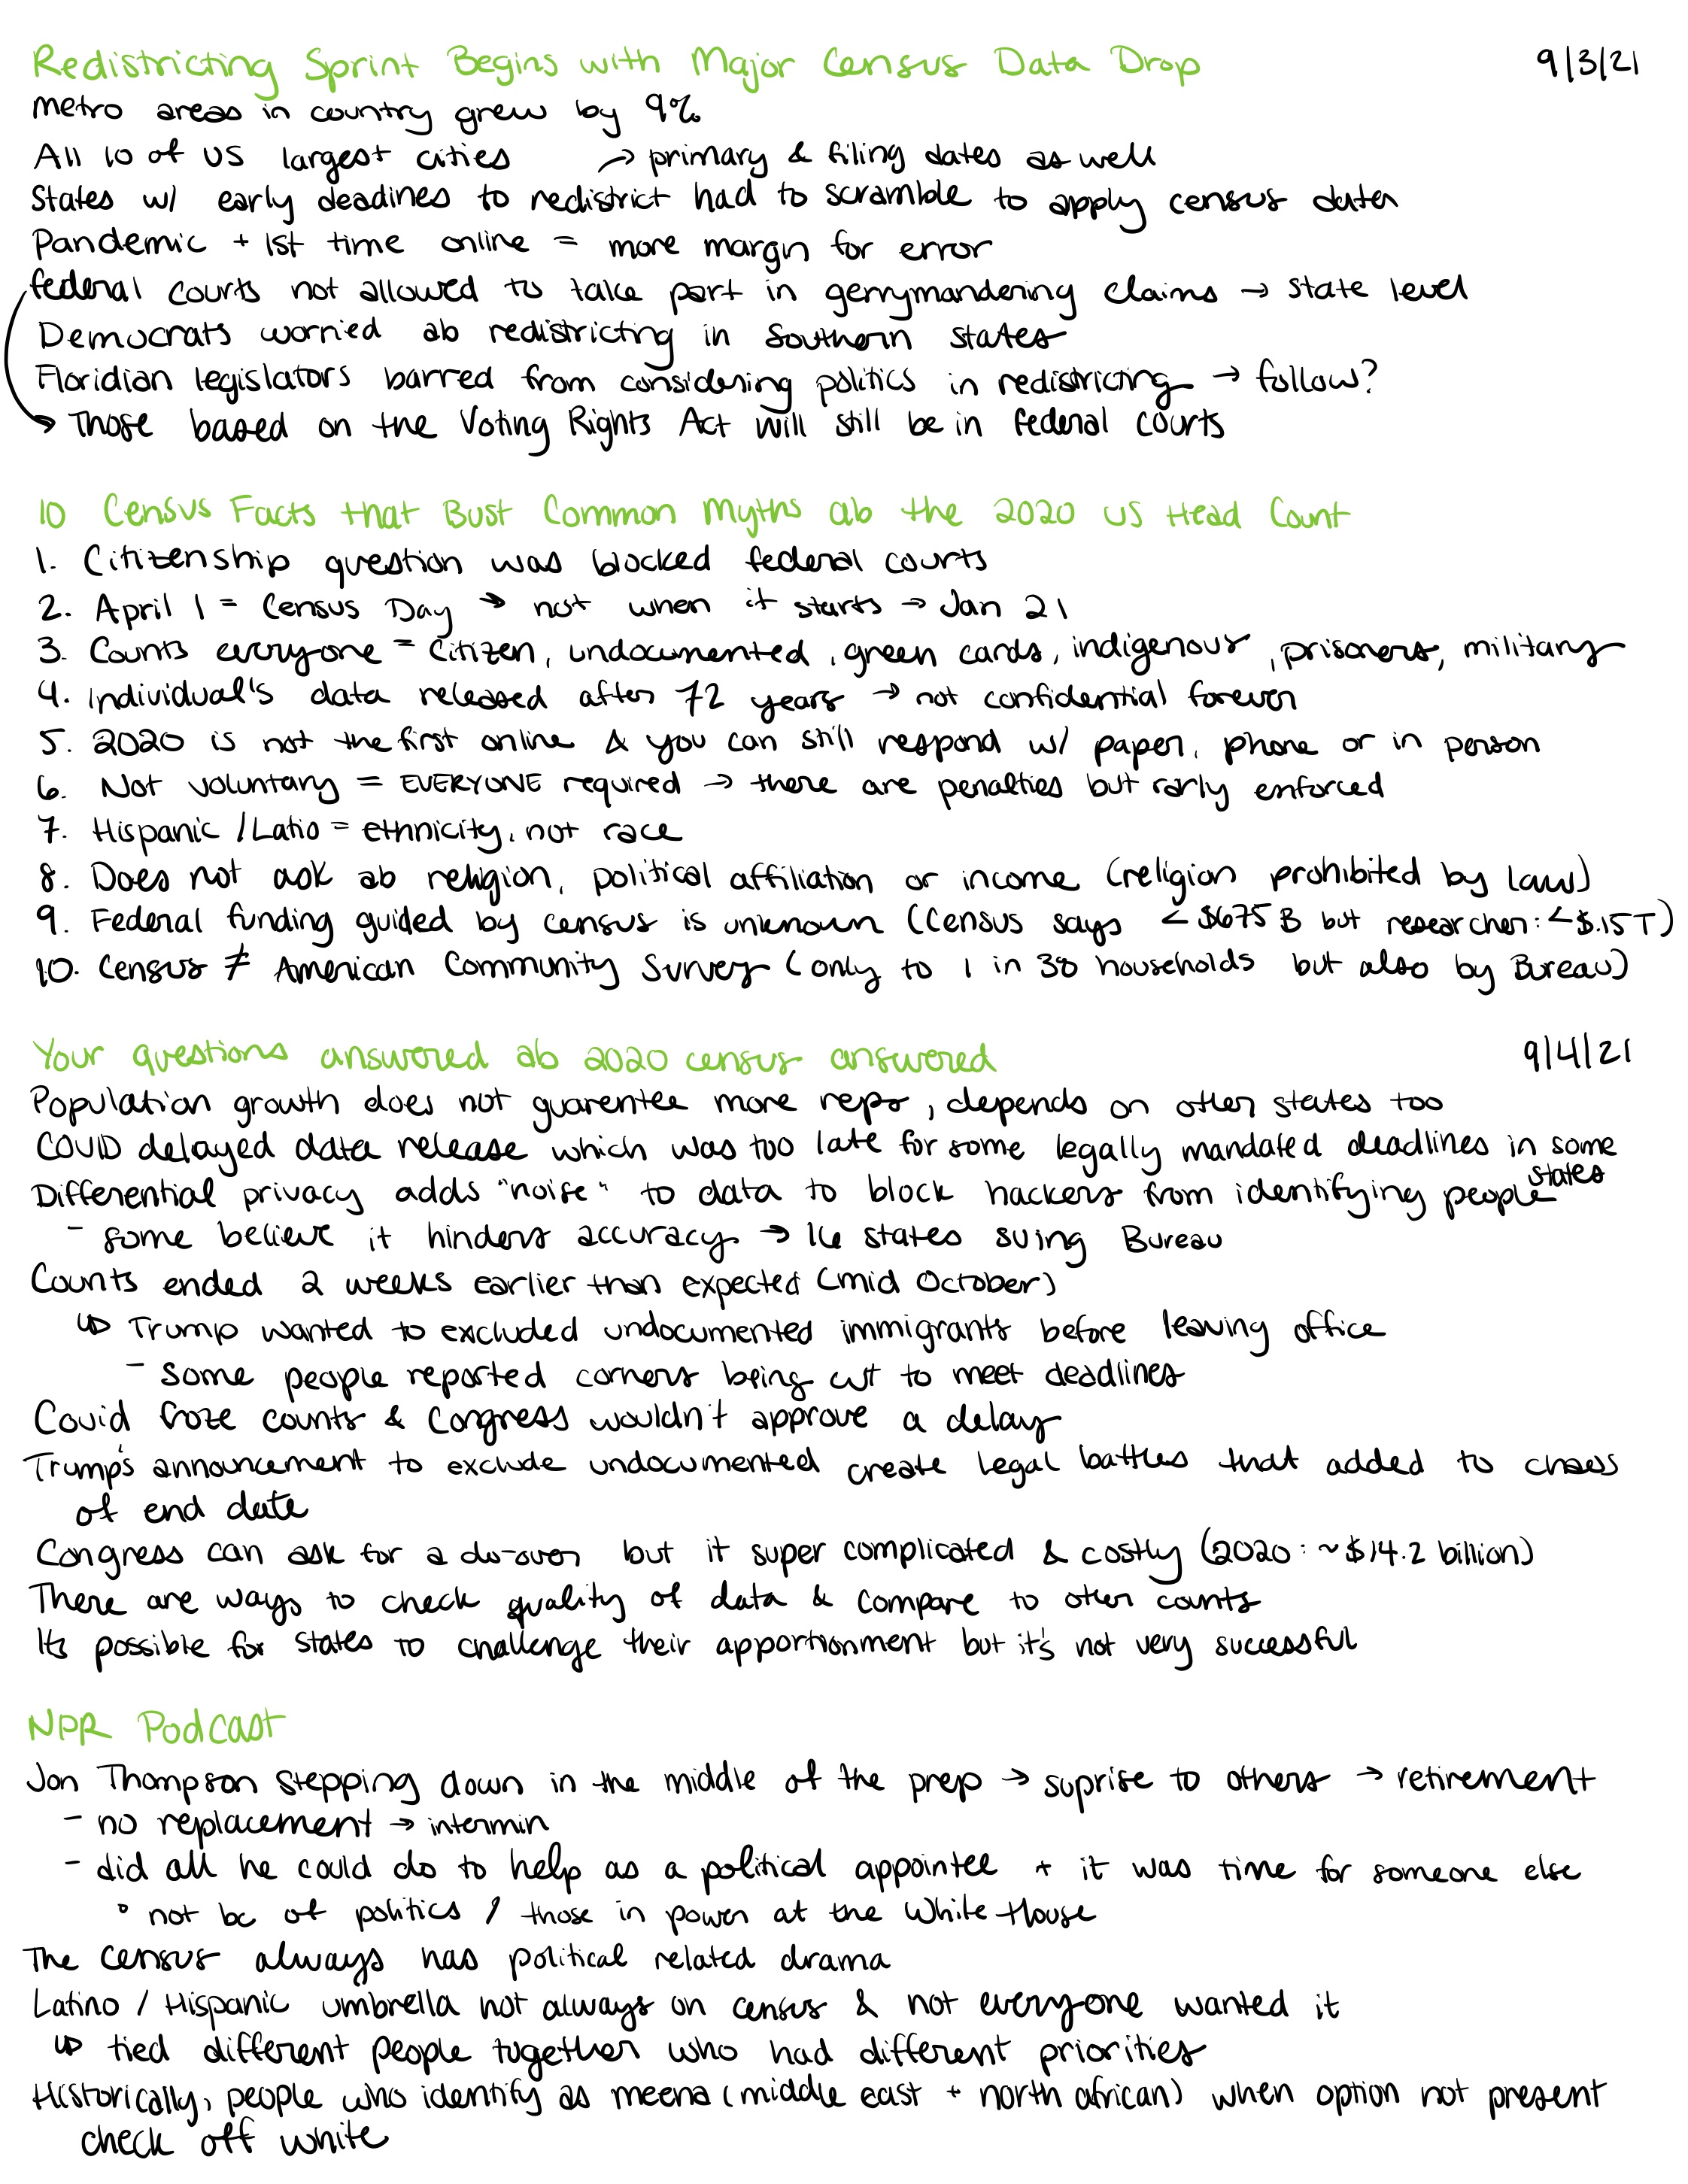 Redistricting Sprint Begins with Major Census Data Drop 9/3/21
Metro areas in country grew by 9%
All 10 of US largest cities → primary & filing dates as well
States w/ early deadines to redistrict had to scramble to apply census data
Pandemic + 1st time online = more margin for error
federal courts not allowed to take part in gerrymandering claims → state level
Democrats worried ab redistricting in Southern states
Floridian legislators barred from considering politics in redistricting → follow?
→ Those based on the Voting Rights Act will still be in federal courts
10 Census Facts that Bust Common Myths ab the 2020 US Head Count
1. Citizenship question was blocked federal courts
2. April 1 = Census Day → not when it starts → Jan 21
3. Counts everyone = citizen, undocumented, green cards, indigenous, prisoners, military
4. Individual's data released after 72 years → not confidential forever
5. 2020 is not the first online & you can still respond w/ paper, phone or in person
6. Not voluntary = EVERYONE required → there are penalties but rarly enforced
7. Hispanic / Latio = ethnicity, not race
8. Does not ask ab religion, political affiliation or income (religion prohibited by law)
9. Federal funding guided by census is unknown (Census says < $675 B but researcher: < $.15T)
10. Census ≠ American Community Survey (only to 1 in 38 households but also by Bureau)
Your questions answered ab 2020 census answered 9/4/21
Population growth does not guarentee more reps, depends on other states too
COVID delayed data release which was too late for some legally mandated deadlines in some states
Differential privacy adds "noise" to data to block hackers from identifying people
- some believe it hinders accuracy → 16 states suing Bureau
Counts ended 2 weeks earlier than expected (mid October)
↳ Trump wanted to excluded undocumented immigrants before leaving office
- Some people reported corners being cut to meet deadlines
Covid froze counts & Congress wouldn't approve a delay
Trump's announcement to exclude undocumented create legal battles that added to chaos
of end date
Congress can ask for a do-over but it super complicated & costly (2020: ~$14.2 billion)
There are ways to check quality of data & compare to other counts
Its possible for states to challenge their apportionment but it's not very successful
NPR Podcast
Jon Thompson stepping down in the middle of the prep → suprise to others → retirement
- no replacement → intermin
- did all he could do to help as a political appointee + it was time for someone else
° not bc of politics / those in power at the White House
The census always has political related drama
Latino / Hispanic umbrella not always on census & not everyone wanted it
↳ tied different people together who had different priorities
Historically, people who identify as meena (middle east + north african) when option not present
check off white